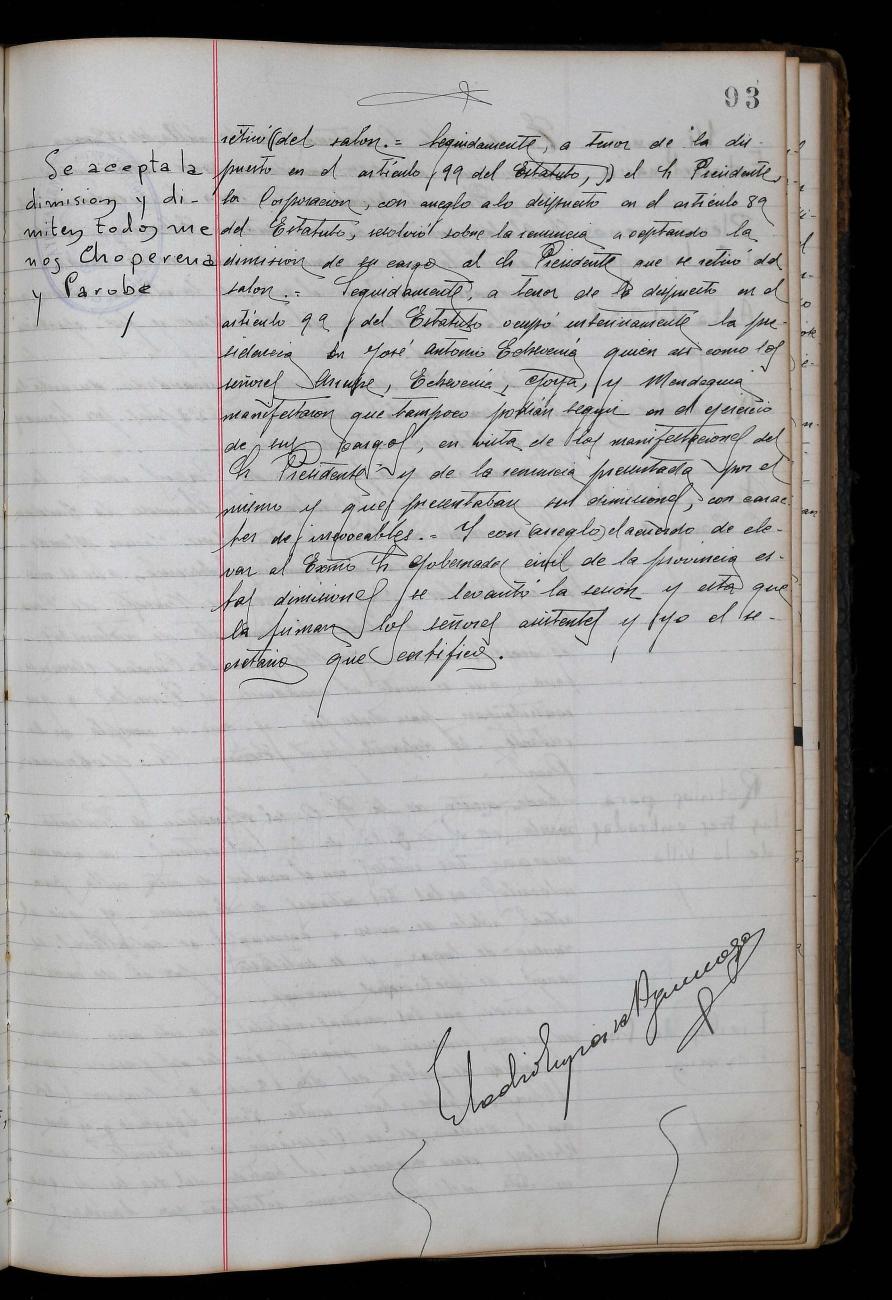 93
Se acepta la
dimision y di-
miten todos me
nos Choperena
y Parobe
retiró (del salon.= Seguidamente, a tenor de la dis-
puesto en el artículo 99 del Estatuto,)) el Sr Presidente,
la Corporacion, con areglo a lo dispuesto en el artículo 89
del Estatuto, resolvió sobre la renuncia aceptando la
dimision de su cargo al Sr Presidente que se retiró del
salon.= Seguidamente, a tenor de lo dispuesto en el
artículo 99 del Estatuto ocupó interinamente la pre-
sidencia Dn José Antonio Echeverria quien asi como los
señores Echeverria, y Mendeguia
manifestaron que tampoco podian seguir en el ejercicio
de sus cargos, en vista de las manifestaciones del
Sr Presidente y de la renuncia presentada por el
mismo y que presentaban sus dimisiones, con carac-
ter de irrevocables.= Y con (areglo) el acuerdo de ele-
var al Exmo Sr Gobernador civil de la provincia es-
tas dimisiones se levantó la sesion y esta que
la firman los señores asistentes y yo el se-
cretario que certifico.
Eladio